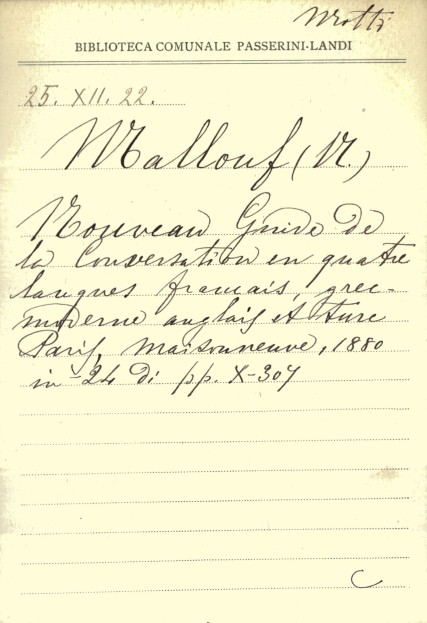 Motti
BIBLIOTECA COMUNALE PASSERINI-LANDI
25. XII. 22.
Mallouf (N.)
Nouveau Guide de
la Conversation en quatre
langues français, grec-
moderne anglais et turc
Paris, Maisonneuve, 1880
in-24 di pp. X-307
C